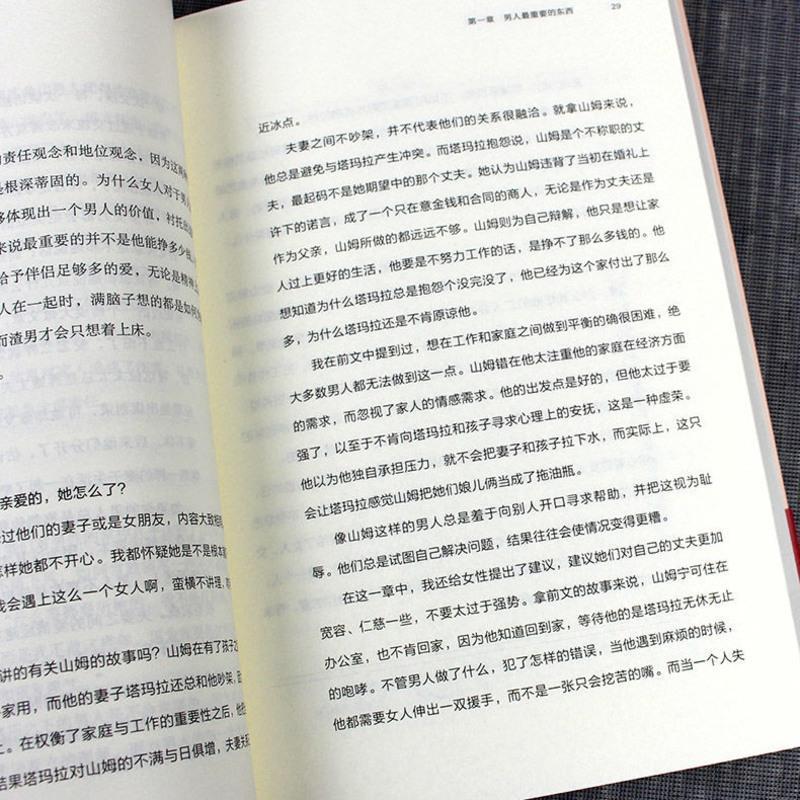 责任观念和地位观念，因为这
是根深蒂固的。为什么女人对于
体现出一个男人的价值，衬托
来说最重要的并不是他能挣多少
给予伴侣足够多的爱，无论是精神
人在一起时，满脑子想的都是如何
而渣男才会只想着上床。
。
亲爱的，她怎么了？
过他们的妻子或是女朋友，内容大致相
怎样她都不开心。我都怀疑她是不是根本
我会遇上这么一个女人啊，蛮横不讲理，
讲的有关山姆的故事吗？山姆在有了孩子
家用，而他的妻子塔玛拉还总和他吵架，
。在权衡了家庭与工作的重要性之后，他
结果塔玛拉对山姆的不满与日俱增，夫妻关
第一章 男人最重要的东西 29
近冰点。
夫妻之间不吵架，并不代表他们的关系很融洽。就拿山姆来说，
他总是避免与塔玛拉产生冲突。而塔玛拉抱怨说，山姆是个不称职的丈
夫，最起码不是她期望中的那个丈夫。她认为山姆违背了当初在婚礼上
许下的诺言，成了一个只在意金钱和合同的商人，无论是作为丈夫还是
作为父亲，山姆所做的都远远不够。山姆则为自己辩解，他只是想让家
人过上更好的生活，他要是不努力工作的话，是挣不了那么多钱的。他
想知道为什么塔玛拉总是抱怨个没完没了，他已经为这个家付出了那么
多，为什么塔玛拉还是不肯原谅他。
我在前文中提到过，想在工作和家庭之间做到平衡的确很困难，绝
大多数男人都无法做到这一点。山姆错在他太注重他的家庭在经济方面
的需求，而忽视了家人的情感需求。他的出发点是好的，但他太过于要
强了，以至于不肯向塔玛拉和孩子寻求心理上的安抚，这是一种虚荣。
他以为他独自承担压力，就不会把妻子和孩子拉下水，而实际上，这只
会让塔玛拉感觉山姆把她们娘儿俩当成了拖油瓶。
像山姆这样的男人总是羞于向别人开口寻求帮助，并把这视为耻
辱。他们总是试图自己解决问题，结果往往会使情况变得更糟。
在这一章中，我还给女性提出了建议，建议她们对自己的丈夫更加
宽容、仁慈一些，不要太过于强势。拿前文的故事来说，山姆宁可住在
办公室，也不肯回家，因为他知道回到家，等待他的是塔玛拉无休无止
的咆哮。不管男人做了什么，犯了怎样的错误，当他遇到麻烦的时候，
他都需要女人伸出一双援手，而不是一张只会挖苦的嘴。而当一个人失